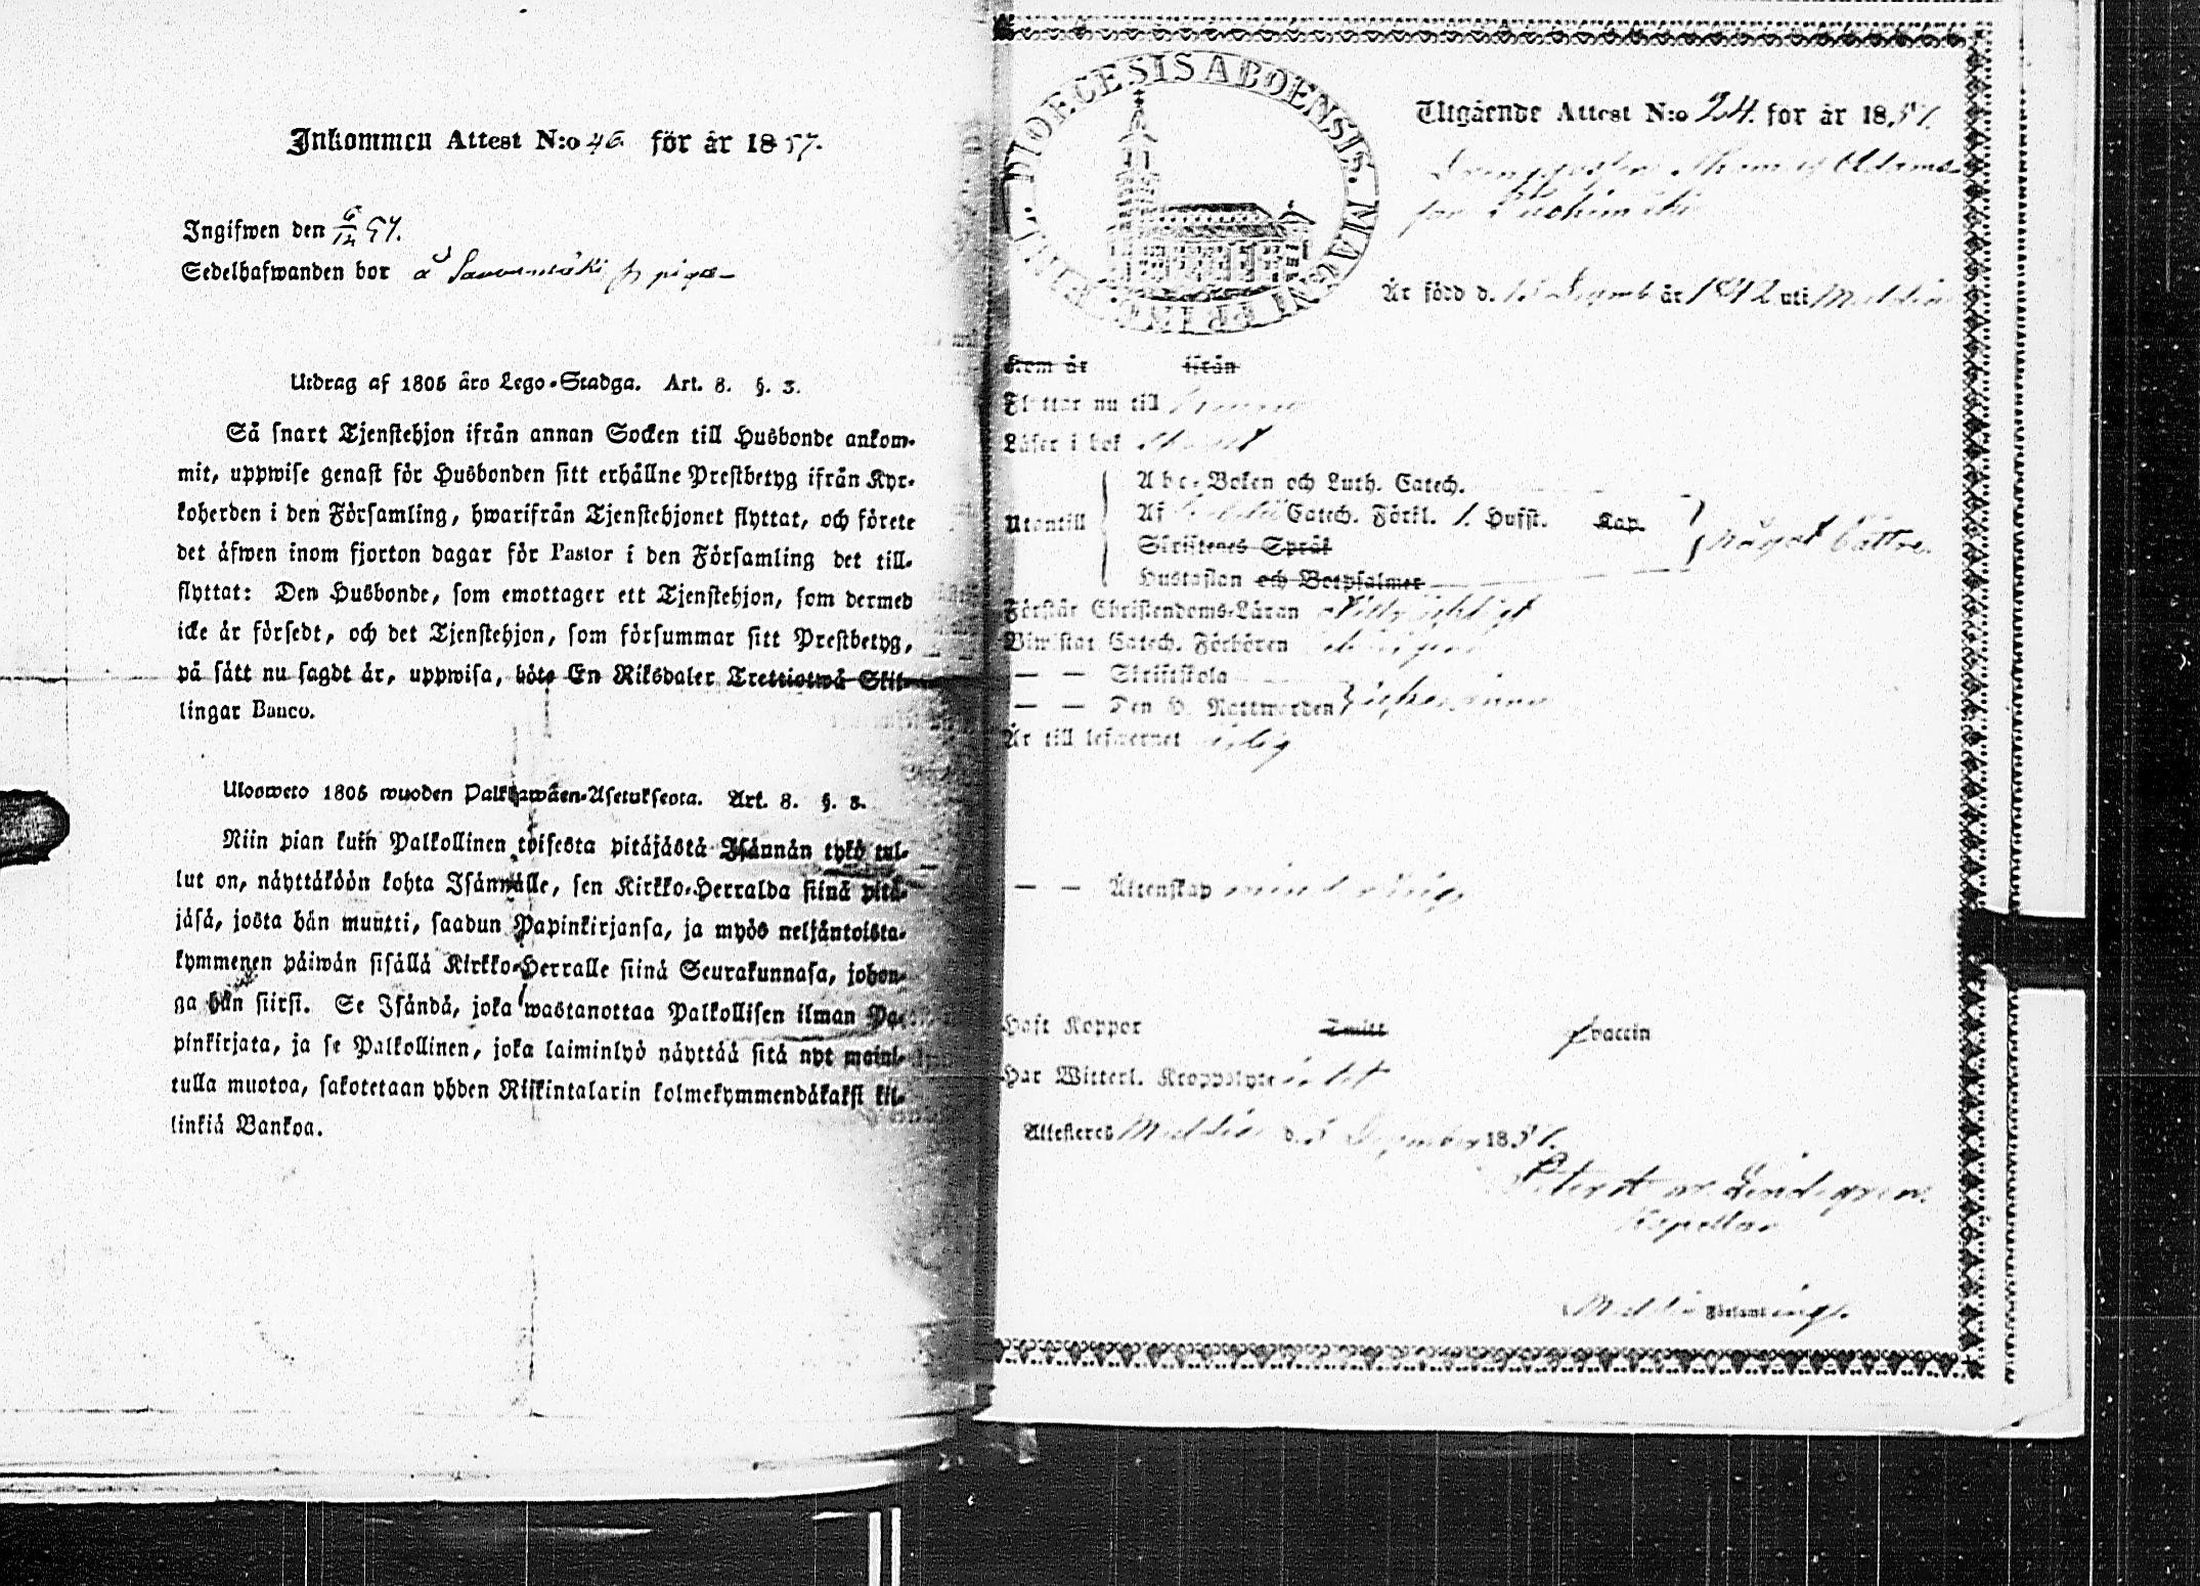 Inkommen Attest N:o 46 för år 1857.
Ingifwen den 6/12 57.
Sedelhafwanden bor å
Utdrag af 1805 års Lego-Stadga. Art. 8. §. 3.
Så snart Tjenstehjon ifrån annan Socken till Husbonde ankom-
mit, uppwise genast för Husbonden sitt erhållne Prestbetyg ifrån Kyr-
koherden i den Församling, hwarifrån Tjenstehjonet flyttat, och förete
det äfwen inom fjorton dagar för Pastor i den Församling det till-
flyttat: Den Husbonde, som emottager ett Tjenstehjon, som dermed
icke är försedt, och det Tjenstehjon, som försummar sitt Prestbetyg,
på sätt nu sagdt är, uppwisa, böte En Riksdaler Trettiotwå Skil-
lingar Banco.
Ulosweto 1805 wuoden Palkkawäen-Asetuksesta. Art. 8. §. 3.
Niin pian kuin Palkollinen toisesta pitäjästä Isännän tykö tul-
lut on, näyttäköön kohta Isännälle, sen Kirkko-Herralda siinä pitä-
jäsä, josta hän muutti, saadun Papinkirjansa, ja myös neljäntoista-
kymmenen päiwän sisällä Kirkko-Herralle siinä Seurakunnasa, johon-
ga hän siirsi. Se Isändä, joka wastanottaa Palkollisen ilman Pa-
pinkirjata, ja se Palkollinen, joka laiminlyö näyttää sitä nyt maini-
tulla muotoa, sakotetaan yhden Riikintalarin kolmekymmendäkaksi kil-
linkiä Bankoa.
DIOECESIS ABOENSIS. MAGNI PRINC. FINL.
Utgående Attest N:o 24. för år 1857.
Är född d. Decemb år 1842 uti
Kom år ifrån
Flyttar nu till
Läser i bok
Utantill
Abc-Boken och Luth. Catech.
Af Catech. Förkl. 1. Husst. Kap.
Skriftenes Språk
något bättre.
Hustaflan och Botpsalmer
Förstår Christendoms-Läran
Biwistat Catech. Förhören
— — Skriftskola
— — Den H. Nattwarden
Är till lefwernet
— — Ächtenskap
Haft Koppor Smitt vaccin
Har Witterl. Kroppslyte
Attesteras d. 5 December 1857.
Lindegren.
Kapellan
Församlings.